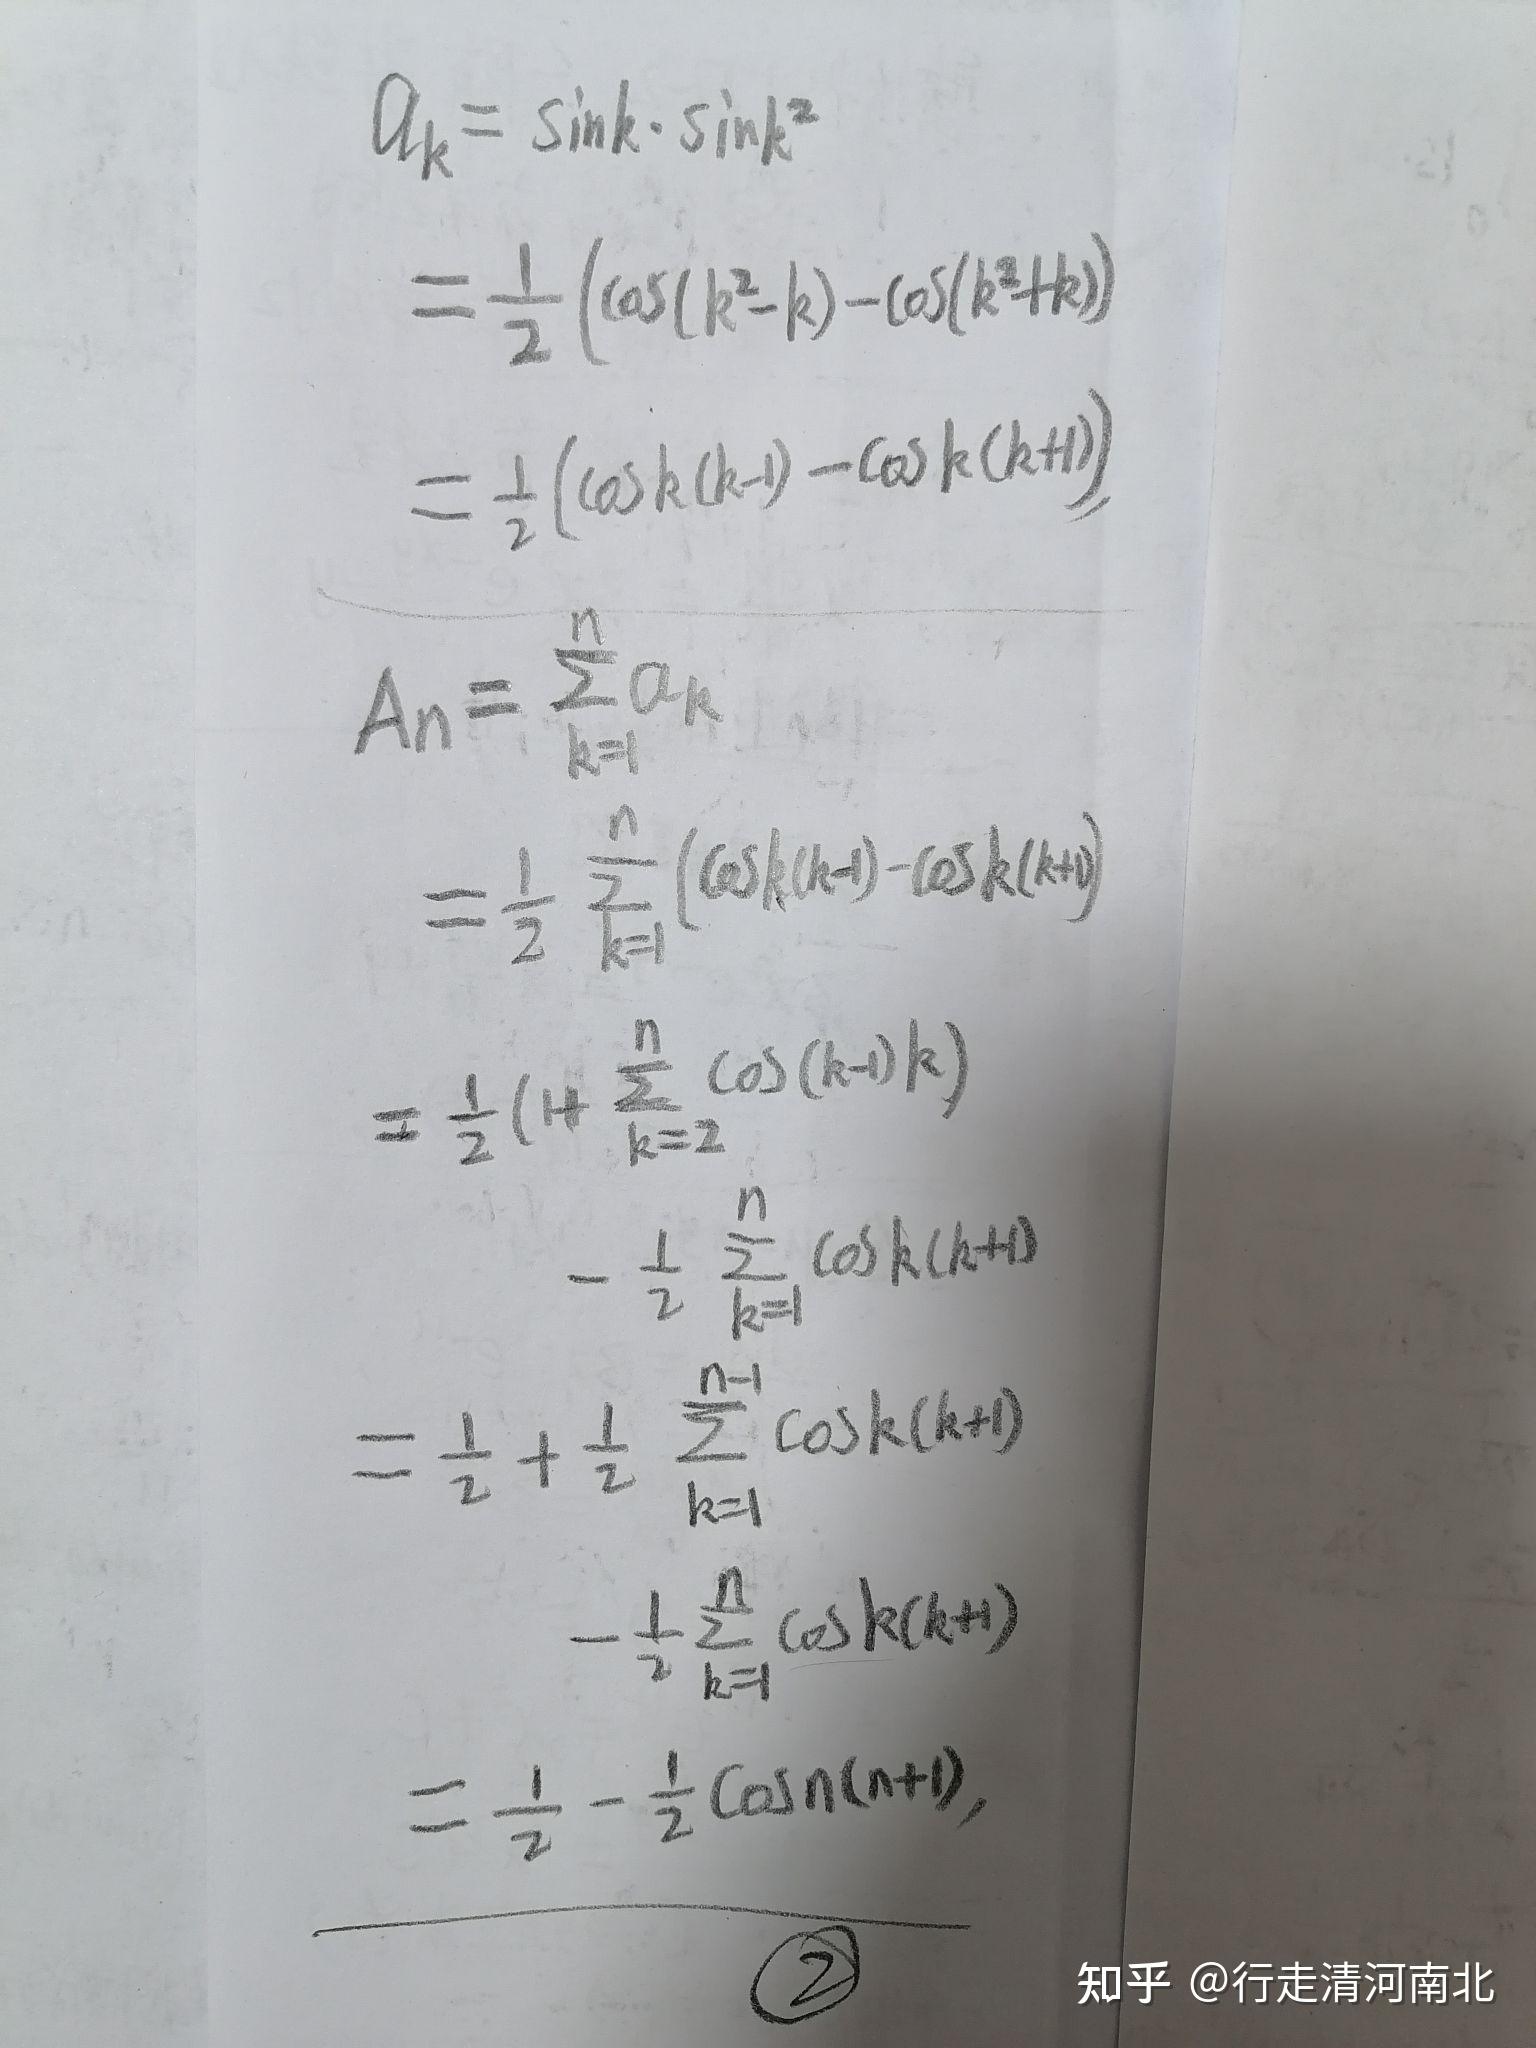 a_k = sink · sink²
= 1/2 (cos(k²-k) - cos(k²+k))
= 1/2 (cosk(k-1) - cosk(k+1)),
An = Σ_{k=1}^{n} a_k
= 1/2 Σ_{k=1}^{n} (cosk(k-1) - cosk(k+1))
= 1/2 (1+ Σ_{k=2}^{n} cos(k-1)k)
- 1/2 Σ_{k=1}^{n} cosk(k+1)
= 1/2 + 1/2 Σ_{k=1}^{n-1} cosk(k+1)
- 1/2 Σ_{k=1}^{n} cosk(k+1)
= 1/2 - 1/2 cosn(n+1),
②
知乎 @行走清河南北